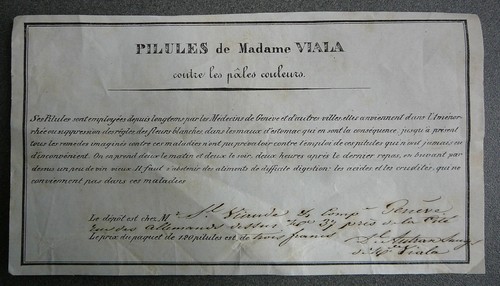 PILULES de Madame VIALA
contre les pâles couleurs.
Ses Pilules sont employées depuis longtems par les Médecins de Genève et d'autres villes, elles conviennent dans l'Aménor-
rhée ou suppression des règles, des fleurs blanches, dans les maux d'estomac qui en sont la conséquence, jusqu'à présent
tous les remèdes imaginés contre ces maladies n'ont pu prévaloir contre l'emploi de ces pilules qui n'ont jamais eu
d'inconvénient. On en prend deux le matin et deux le soir, deux heures après le dernier repas, en buvant par
dessus un peu de vin vieux. Il faut s'abstenir des aliments de difficile digestion: les acides et les crudités, qui ne
conviennent pas dans ces maladies.
Le dépôt est chez Mr. Comp. Genève
Rue des Allemands dessus, No. 37 près de la Cité
Le prix du paquet de 120 pilules est de trois francs
Viala